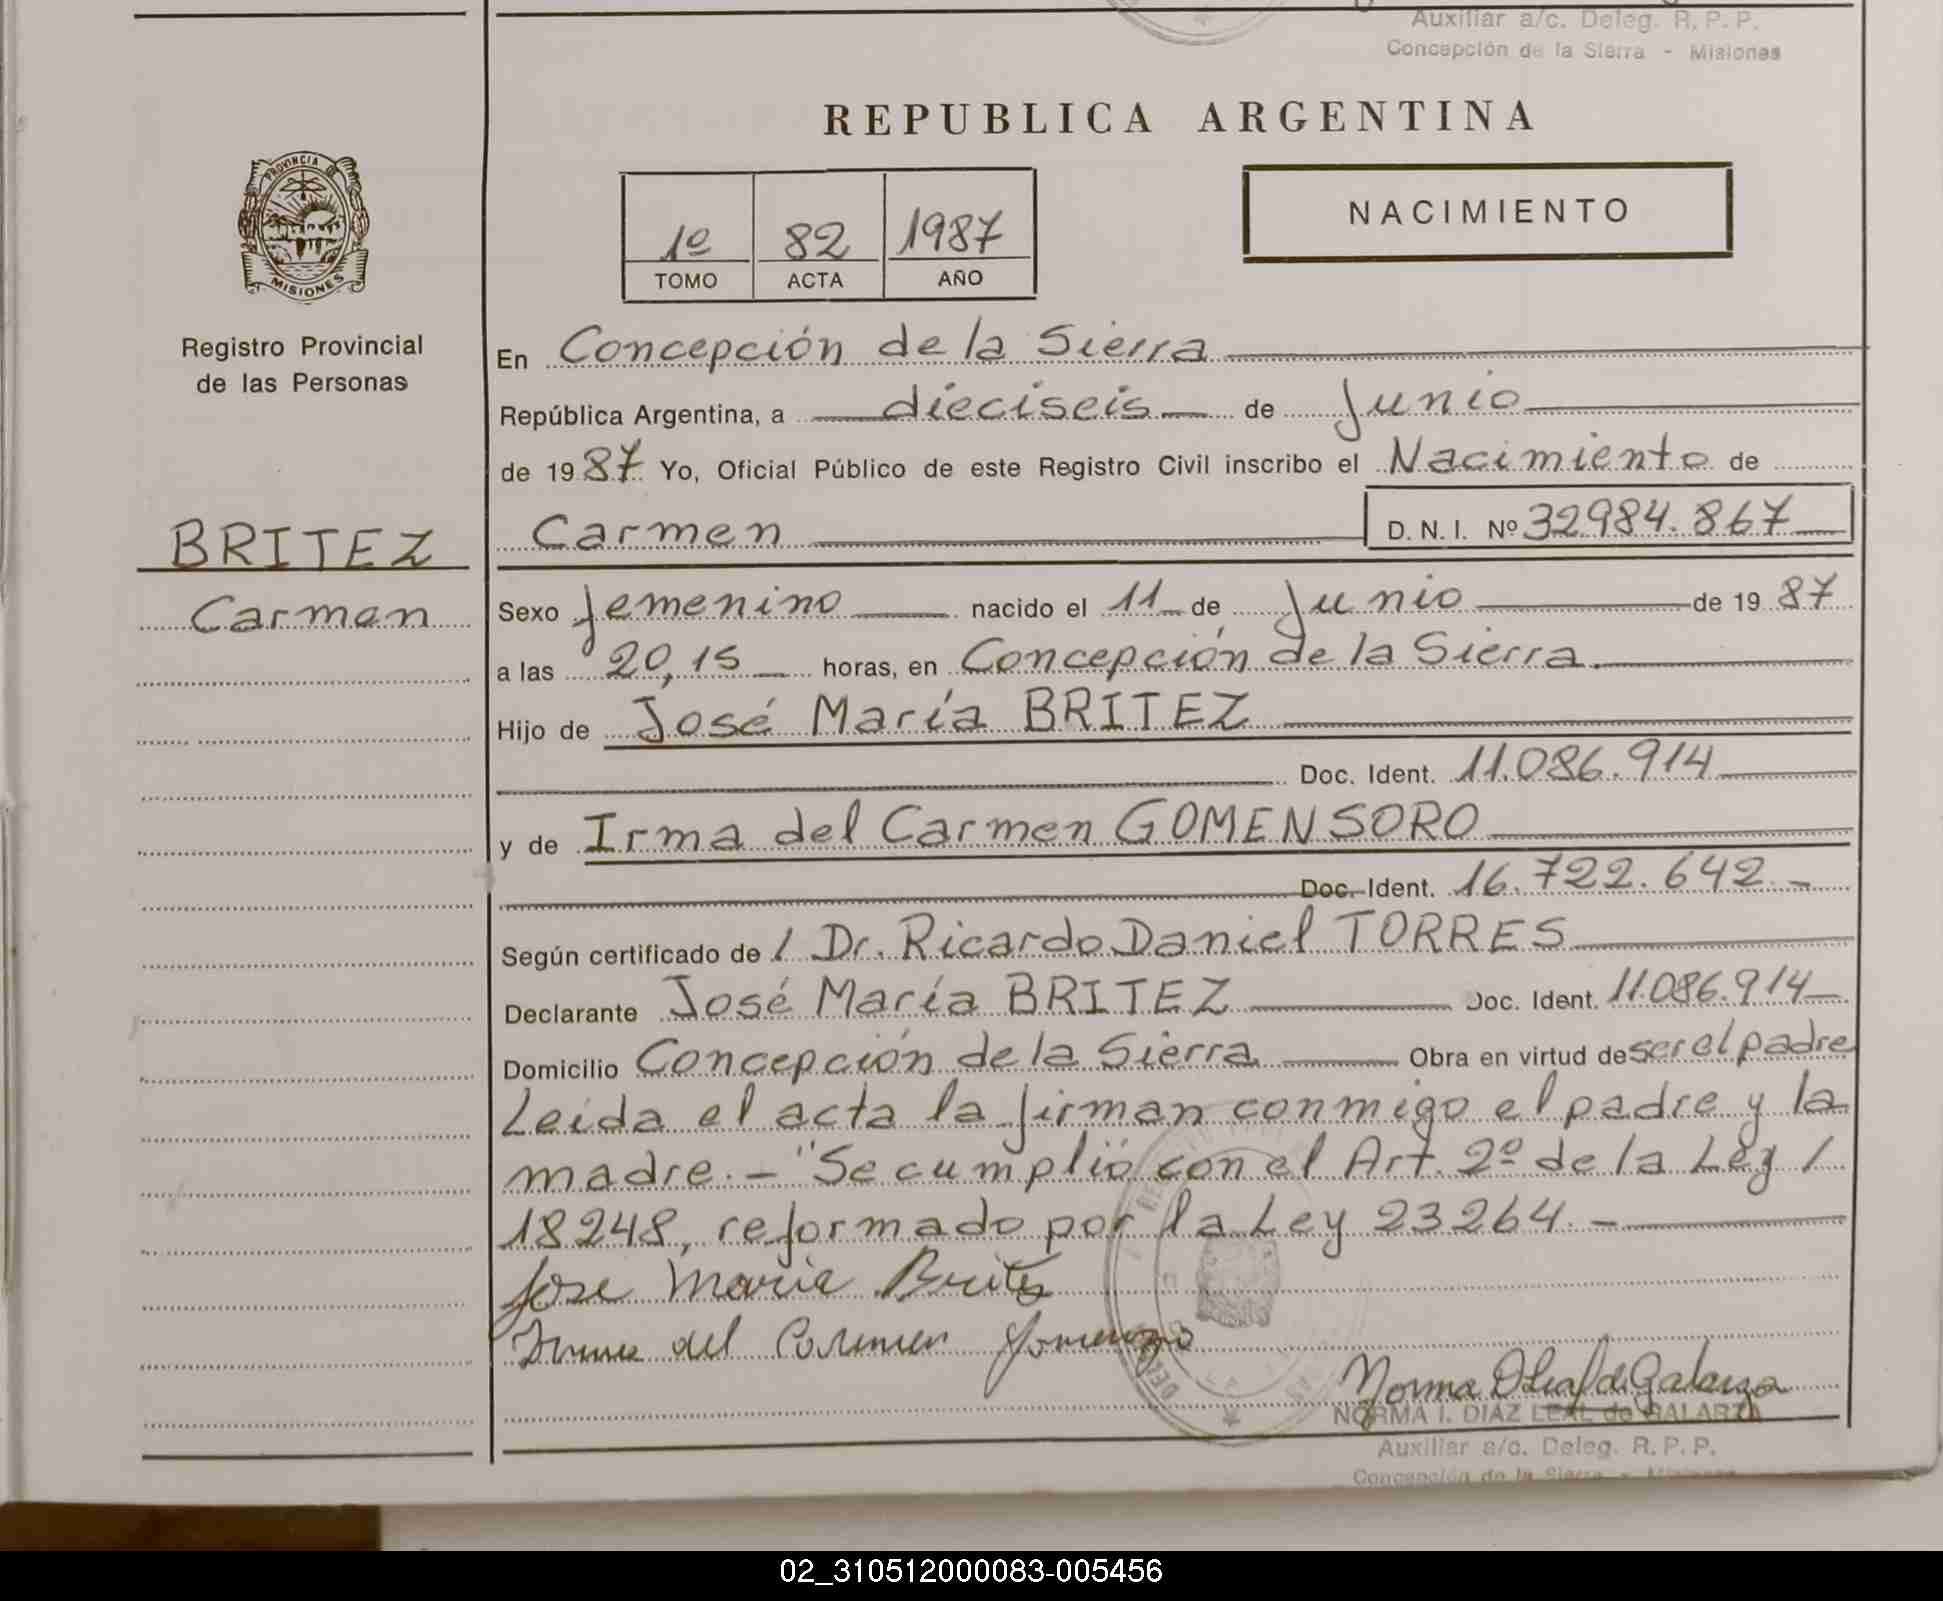 Auxiliar a/c. Deleg. R. P. P.
Concepción de la Sierra - Misiones
REPUBLICA ARGENTINA
PROVINCIA DE
MISIONES
1º 82 1987
TOMO ACTA AÑO
NACIMIENTO
Registro Provincial
de las Personas
BRITEZ
Carmen
En Concepción de la Sierra
República Argentina, a dieciseis de Junio
de 1987 Yo, Oficial Público de este Registro Civil inscribo el Nacimiento de
Carmen D. N. I. Nº 32984.867
Sexo femenino nacido el 11 de Junio de 1987
a las 20,15 horas, en Concepción de la Sierra.
Hijo de José María BRITEZ
Doc. Ident. 11.086.914
y de Irma del Carmen GOMENSORO
Doc. Ident. 16.722.642.-
Según certificado de / Dr. Ricardo Daniel TORRES
Declarante José María BRITEZ Doc. Ident. 11.086.914
Domicilio Concepción de la Sierra Obra en virtud de ser el padre
Leida el acta la firman conmigo el padre y la
madre.- "Se cumplió con el Art. 2º de la Ley /
18248, reformado por la Ley 23264.-
Jose Maria Britez
Irma del Carmen Gomensoro
Norma D Leal de Galarza
NORMA I. DIAZ LEAL de GALARZA
Auxiliar a/c. Deleg. R. P. P.
Concepción de la Sierra - Misiones
02_310512000083-005456